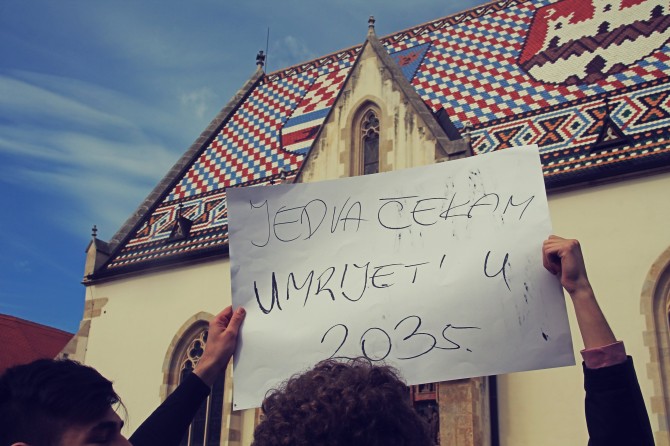 JEDVA ČEKAM
UMRIJETI U
2035.